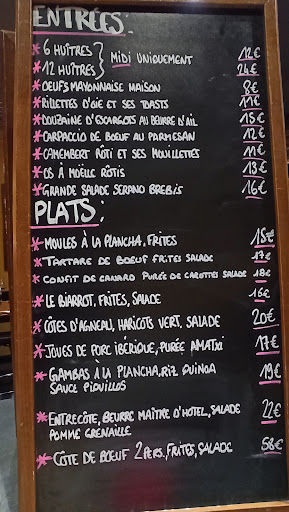 ENTRÉES:
* 6 HUÎTRES } MIDI UNIQUEMENT 12€
* 12 HUÎTRES 24€
* OEUFS MAYONNAISE MAISON 8€
* RILLETTES D'OIE ET SES TOASTS 11€
* DOUZAINE D'ESCARGOTS AU BEURRE D'AIL 15€
* CARPACCIO DE BOEUF AU PARMESAN 12€
* CAMEMBERT RÔTI ET SES MOUILLETTES 11€
* OS À MOËLLE RÔTIS 13€
* GRANDE SALADE SERANO BREBIS 16€
PLATS:
* MOULES À LA PLANCHA, FRITES 15€
* TARTARE DE BOEUF FRITES SALADE 17€
* CONFIT DE CANARD PURÉE DE CAROTTES SALADE 18€
* LE BIARROT, FRITES, SALADE 16€
* CÔTES D'AGNEAU, HARICOTS VERT, SALADE 20€
* JOUES DE PORC IBÉRIQUE, PURÉE AMATXI 17€
* GAMBAS À LA PLANCHA, RIZ QUINOA 19€
SAUCE PIQUILLOS
* ENTRECÔTE, BEURRE MAÎTRE D'HOTEL, SALADE 22€
POMME GRENAILLE
* CÔTE DE BOEUF 2 PERS, FRITES, SALADE 58€